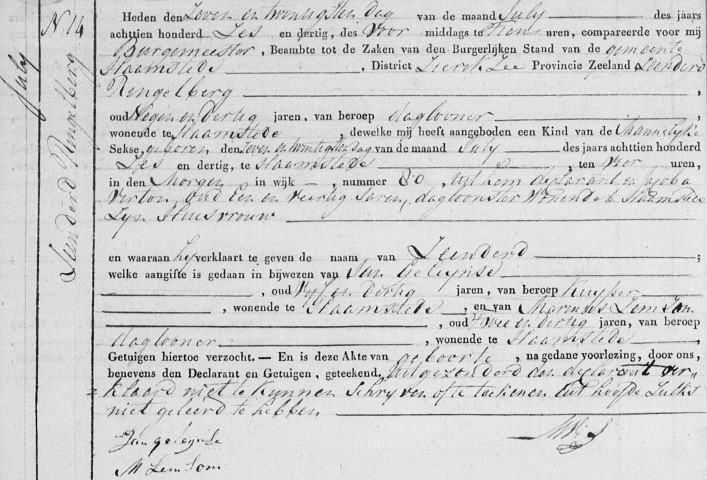 N 14
July
Leenderd Ringelberg
Heden den Zeven en twintigsten dag van de maand July des jaars
achttien honderd Zes en dertig, des Voor middags te Tien uren, compareerde voor mij
Burgemeester, Beambte tot de Zaken van den Burgerlijken Stand van de gemeente
Haamstede, District Zierikzee Provincie Zeeland, Leenderd
Ringelberg,
oud Negen en Dertig jaren, van beroep daglooner
wonende te Haamstede, dewelke mij heeft aangeboden een Kind van de Mannelijke
Sekse, geboren den Zeven en twintigsten dag van de maand July des jaars achttien honderd
Zes en dertig, te Haamstede, ten vier uren,
in den Morgen in wijk – nummer 80, uit hem declarant en
oud Een en Veertig Jaren, dagloonster Wonende te Haamstede
Zyn Huisvrouw
en waaraan hy verklaart te geven de naam van Leenderd;
welke aangifte is gedaan in bijwezen van Jan Geleynse
, oud Vyf en Dertig jaren, van beroep Kuyper
, wonende te Haamstede, en van Marinus Lemsom
, oud Twee en dertig jaren, van beroep
daglooner, wonende te Haamstede
Getuigen hiertoe verzocht. — En is deze Akte van geboorte, na gedane voorlezing, door ons,
benevens den Declarant en Getuigen, geteekend, uitgezonderd den declarant ver
klaard niet te kunnen Schryven ofte teekenen uit hoofde Zulks
niet geleerd te hebben
Jan geleynse
M Lemsom